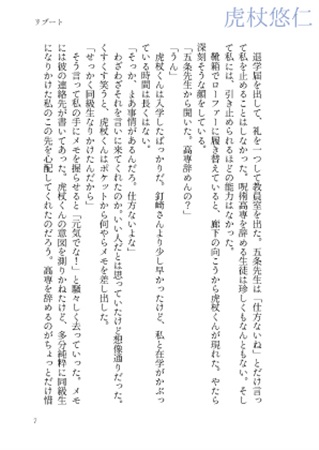 リブート
虎杖悠仁
退学届を出して、礼を一つして教員室を出た。五条先生は「仕方ないね」とだけ言っ
て私を止めることはしなかった。呪術高専を辞める生徒は珍しくもなんともない。そし
て私には、引き止められるほどの能力はなかった。
靴箱でローファーに履き替えていると、廊下の向こうから虎杖くんが現れた。やたら
深刻そうな顔をしている。
「五条先生から聞いた。高専辞めんの？」
「うん」
虎杖くんは入学したばっかりだ。釘崎さんより少し早かったけど、私と在学がかぶっ
ている時間は長くはない。
「そっか、まあ事情があるんだろ。仕方ないよな」
わざわざそれを言いに来てくれたのか。いい人だとは思っていたけど想像通りだった。
くすくす笑うと、虎杖くんはポケットから何やらメモを差し出した。
「せっかく同級生なりかけたんだから」
そう言って私の手にメモを握らせると「元気でな！」と騒々しく去っていった。メモ
には彼の連絡先が書いてあった。虎杖くんの意図を測りかねたけど、多分純粋に同級生
になりかけた私のこの先を心配してくれたのだろう。高専を辞めるのがちょっとだけ惜
7